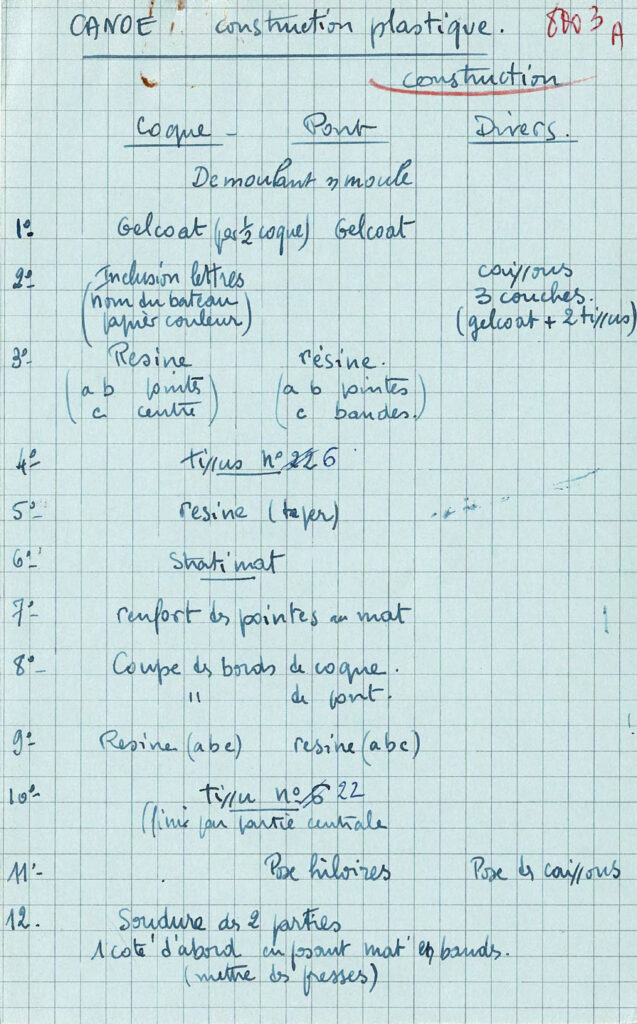 CANOE : construction plastique. 8003 A
construction
Coque - Pont Divers.
Demoulant s/ moule
1º Gelcoat (par 1/2 coque) Gelcoat
2º Inclusion lettres caissons
(nom du bateau 3 couches.
papier couleur) (gelcoat + 2 tissus)
3º- Resine résine.
(a b pointes (a b pointes
c centre) c bandes.)
4º- tissus nº 6
5º- resine (taper)
6º- Stratimat
7º- renfort des pointes au mat
8º- Coupe des bords de coque.
" de pont.
9º- Resine (abc) resine (abc)
10º- tissu nº 22
(finir par partie centrale
11º- Pose hiloires Pose des caissons
12. Soudure des 2 parties
1 coté d'abord en posant mat en bandes.
(mettre des presses)